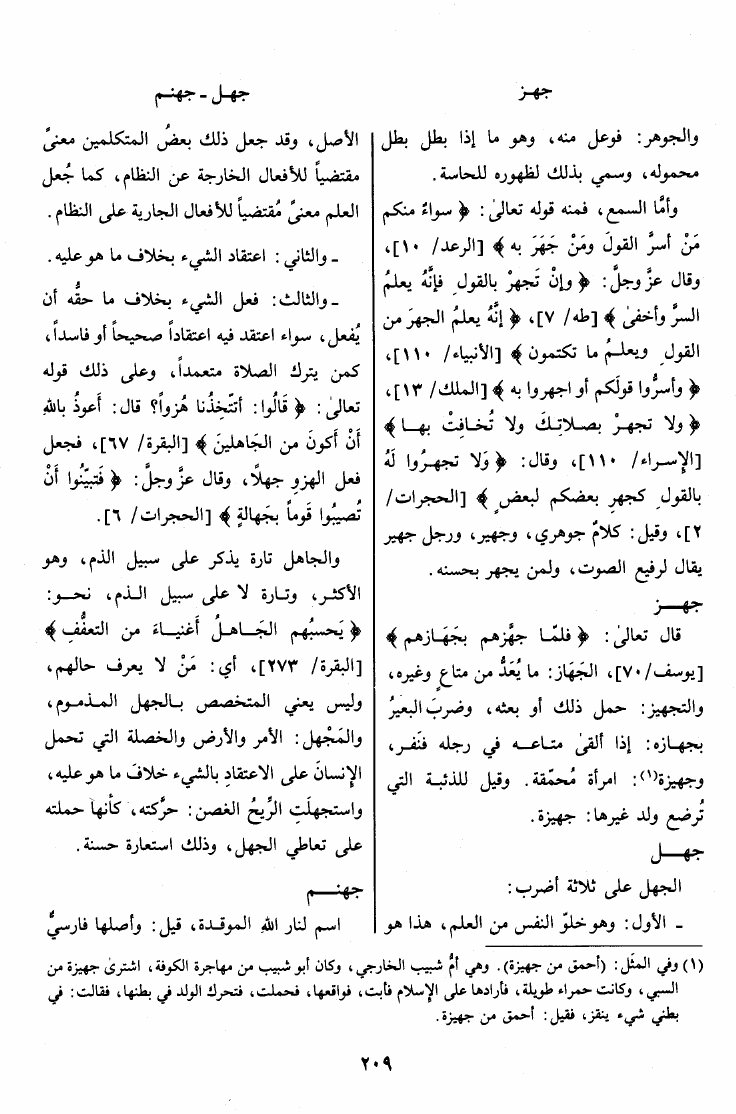 جهز
جهل - جهنم
والجوهر: فوعل منه، وهو ما إذا بطل بطل
محموله، وسمي بذلك لظهوره للحاسة.
وأمَّا السمع، فمنه قوله تعالىٰ: ﴿ سواءٌ منكم
مَنْ أسرَّ القولَ ومَنْ جَهَرَ به ﴾ [الرعد/ ١٠]،
وقال عزَّ وجلَّ: ﴿ وإنْ تَجهرْ بالقولِ فإنَّهُ يعلمُ
السرَّ وأخفىٰ ﴾ [طه/ ٧]، ﴿ إنَّهُ يعلمُ الجهرَ من
القولِ ويعلـمُ ما تكتمون ﴾ [الأنبياء/ ١١٠]،
﴿ وأسرُّوا قولَكم أو اجهروا به ﴾ [الملك/ ١٣]،
﴿ ولا تجهرْ بصلاتِكَ ولا تُخافِتْ بها ﴾
[الإسراء/ ١١٠]، وقال: ﴿ وَلا تجهرُوا لَهُ
بالقولِ كجهرِ بعضكم لبعضٍ ﴾ [الحجرات/
٢]، وقيل: كلامٌ جوهري، وجهير، ورجل جهير
يقال لرفيع الصوت، ولمن يجهر بحسنه.
جهـز
قال تعالىٰ: ﴿ فلمَّا جهَّزهم بجَهَازهم ﴾
[يوسف/٧٠]، الجَهَاز: ما يُعَدُّ من متاعٍ وغيره،
والتجهيز: حمل ذلك أو بعثه، وضربَ البعيرُ
بجهازه: إذا ألقىٰ متاعه في رجله فنَفر،
وجهيزة(١): امرأة مُحمّقة. وقيل للذئبة التي
تُرضع ولد غيرها: جهيزة.
جهـل
الجهل على ثلاثة أضرب:
- الأول: وهو خلوّ النفس من العلم، هذا هو
الأصل، وقد جعل ذلك بعضُ المتكلمين معنىً
مقتضياً للأفعال الخارجة عن النظام، كما جُعل
العلم معنىً مُقتضياً للأفعال الجارية على النظام.
- والثاني: اعتقاد الشيء بخلاف ما هو عليه.
- والثالث: فعل الشيء بخلاف ما حقُّه أن
يُفعل، سواء اعتقد فيه اعتقاداً صحيحاً أو فاسداً،
كمن يترك الصلاة متعمداً، وعلى ذلك قوله
تعالىٰ: ﴿ قَالُوا: أتتّخِذُنا هُزواً؟ قال: أعوذُ باللهِ
أنْ أكونَ من الجَاهلينَ ﴾ [البقرة/ ٦٧]، فجعل
فعل الهزوِ جهلاً، وقال عزَّ وجلَّ: ﴿ فَتبيّنُوا أنْ
تُصيبُوا قَوماً بجَهالةٍ ﴾ [الحجرات/ ٦].
والجاهل تارة يذكر على سبيل الذم، وهو
الأكثر، وتارة لا على سبيل الذم، نحو:
﴿ يَحسبُهم الجَاهلُ أَغنياءَ من التعفُّفِ ﴾
[البقرة/ ٢٧٣]، أي: مَنْ لا يعرف حالهم،
وليس يعني المتخصص بالجهل المذموم،
والمَجْهل: الأمر والأرض والخصلة التي تحمل
الإنسانَ على الاعتقادِ بالشيء خلافَ ما هو عليه،
واستجهلَتِ الرِّيحُ الغصن: حرَّكته، كأنها حملته
على تعاطي الجهل، وذلك استعارة حسنة.
جهنـم
اسم لنار اللهِ الموقدة، قيل: وأصلها فارسيٌّ
(١) وفي المثَل: (أحمق من جهيزة). وهي أمُّ شبيب الخارجي، وكان أبو شبيب من مهاجرة الكوفة، اشترىٰ جهيزة من
السبي، وكانت حمراء طويلة، فأرادها على الإسلام فأبت، فواقعها، فحملت، فتحرك الولد في بطنها، فقالت: في
بطني شيء ينقز، فقيل: أحمق من جهيزة.
٢٠٩